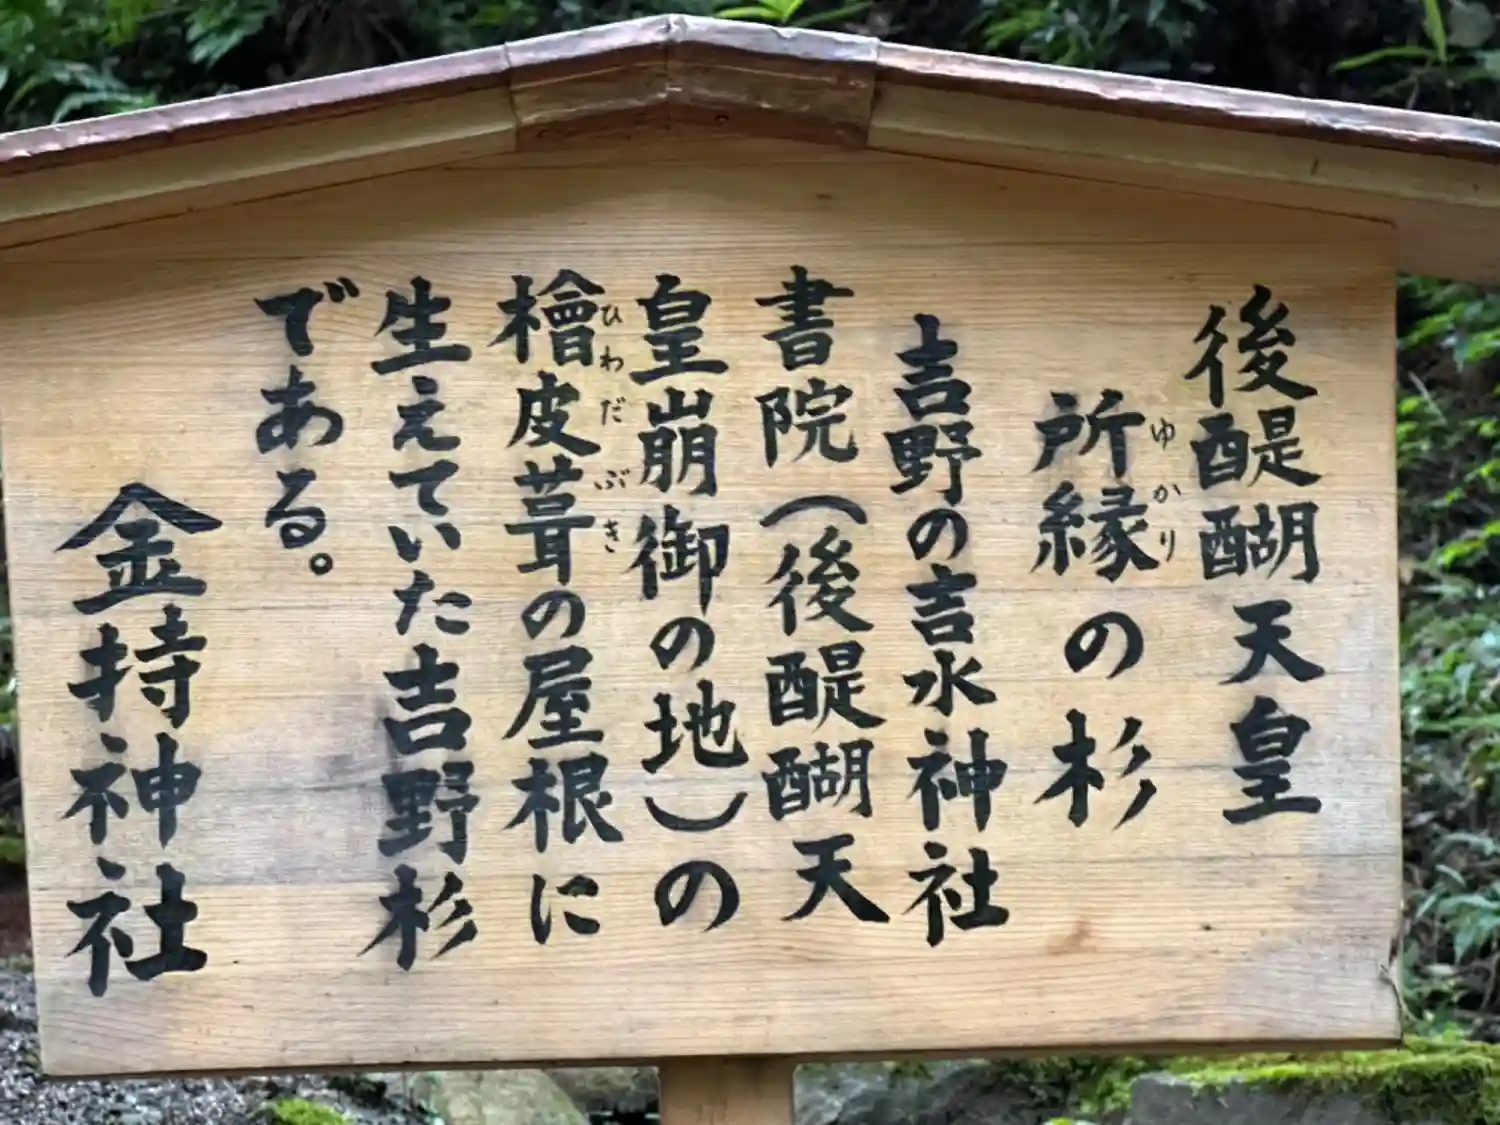 後醍醐天皇
所縁の杉
ゆかり
吉野の吉水神社
書院(後醍醐天
皇崩御の地)の
檜皮葺の屋根に
ひわだぶき
生えていた吉野杉
である。
金持神社